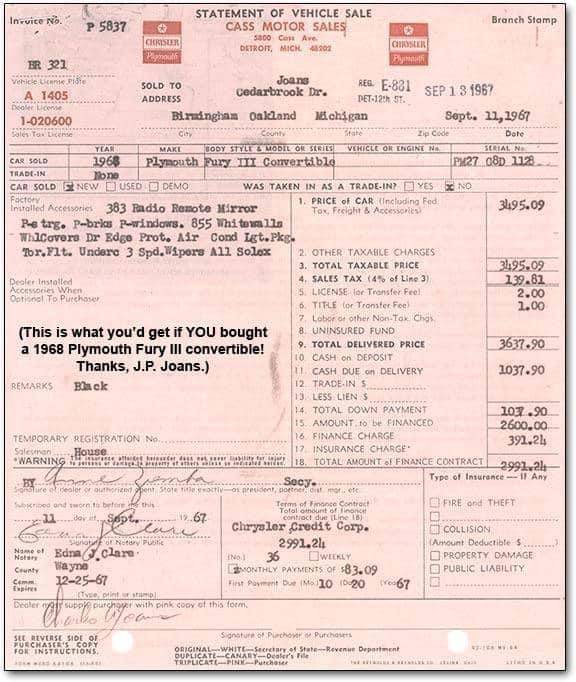 STATEMENT OF VEHICLE SALE
Invoice No. P 5837
CASS MOTOR SALES
Branch Stamp
5800 Cass Ave.
DETROIT, MICH. 48202
CHRYSLER
Plymouth
CHRYSLER
Plymouth
BR 321
Vehicle License Plate
A 1405
Dealer License
1-020600
Sales Tax License
SOLD TO
ADDRESS
Joans
Cedarbrook Dr.
REG. E-831
DET-12th ST.
SEP 13 1967
Birmingham Oakland Michigan Sept. 11,1967
City County State Zip Code Date
YEAR MAKE BODY STYLE & MODEL OR SERIES VEHICLE OR ENGINE No. SERIAL No.
CAR SOLD 1968 Plymouth Fury III Convertible PM27 G8D 1128
TRADE-IN None
CAR SOLD NEW USED DEMO WAS TAKEN IN AS A TRADE-IN? YES NO
Factory
Installed Accessories 383 Radio Remote Mirror
P-strg. P-brks P-windows. 855 Whitewalls
WhlCovers Dr Edge Prot. Air Cond Lgt.Pkg.
Tor.Flt. Underc 3 Spd.Wipers All Solex
Dealer Installed
Accessories When
Optional To Purchaser
(This is what you'd get if YOU bought
a 1968 Plymouth Fury III convertible!
Thanks, J.P. Joans.)
REMARKS Black
TEMPORARY REGISTRATION No.
Salesman House
*WARNING The insurance afforded hereunder does not cover liability for injury
to persons or damage to property of others unless so indicated hereon.
1. PRICE of CAR (Including Fed.
Tax, Freight & Accessories) 3495.09
2. OTHER TAXABLE CHARGES
3. TOTAL TAXABLE PRICE 3495.09
4. SALES TAX (4% of Line 3) 139.81
5. LICENSE (or Transfer Fee) 2.00
6. TITLE (or Transfer Fee) 1.00
7. Labor or other Non-Tax. Chgs.
8. UNINSURED FUND
9. TOTAL DELIVERED PRICE 3637.90
10. CASH on DEPOSIT
11. CASH DUE on DELIVERY 1037.90
12. TRADE-IN $
13. LESS LIEN $
14. TOTAL DOWN PAYMENT 1037.90
15. AMOUNT to be FINANCED 2600.00
16. FINANCE CHARGE 391.24
17. INSURANCE CHARGE*
18. TOTAL AMOUNT of FINANCE CONTRACT 2991.24
BY Secy.
Signature of dealer or authorized agent. State title exactly—as president, partner, dist. mgr., etc.
Subscribed and sworn to before me this
11 day of Sept. 1967
Edna J. Clare
Signature of Notary Public
Name of
Notary Edna J. Clare
County Wayne
Comm.
Expires 12-25-67
(Type, print or stamp)
Terms of Finance Contract
Total amount of finance
contract due (Line 18)
Chrysler Credit Corp.
2991.24
(No.) 36 WEEKLY
MONTHLY PAYMENTS OF $83.09
First Payment Due (Mo.) 10 (Da) 20 (Year) 67
Type of Insurance — If Any
FIRE and THEFT
COLLISION
(Amount Deductible $ )
PROPERTY DAMAGE
PUBLIC LIABILITY
Dealer must supply purchaser with pink copy of this form.
Charles Joans
Signature of Purchaser or Purchasers
SEE REVERSE SIDE OF
PURCHASER'S COPY
FOR INSTRUCTIONS.
ORIGINAL—WHITE—Secretary of State—Revenue Department
DUPLICATE—CANARY—Dealer's File
TRIPLICATE—PINK—Purchaser
THE REYNOLDS & REYNOLDS CO., CELINA, OHIO LITHO IN U.S.A.